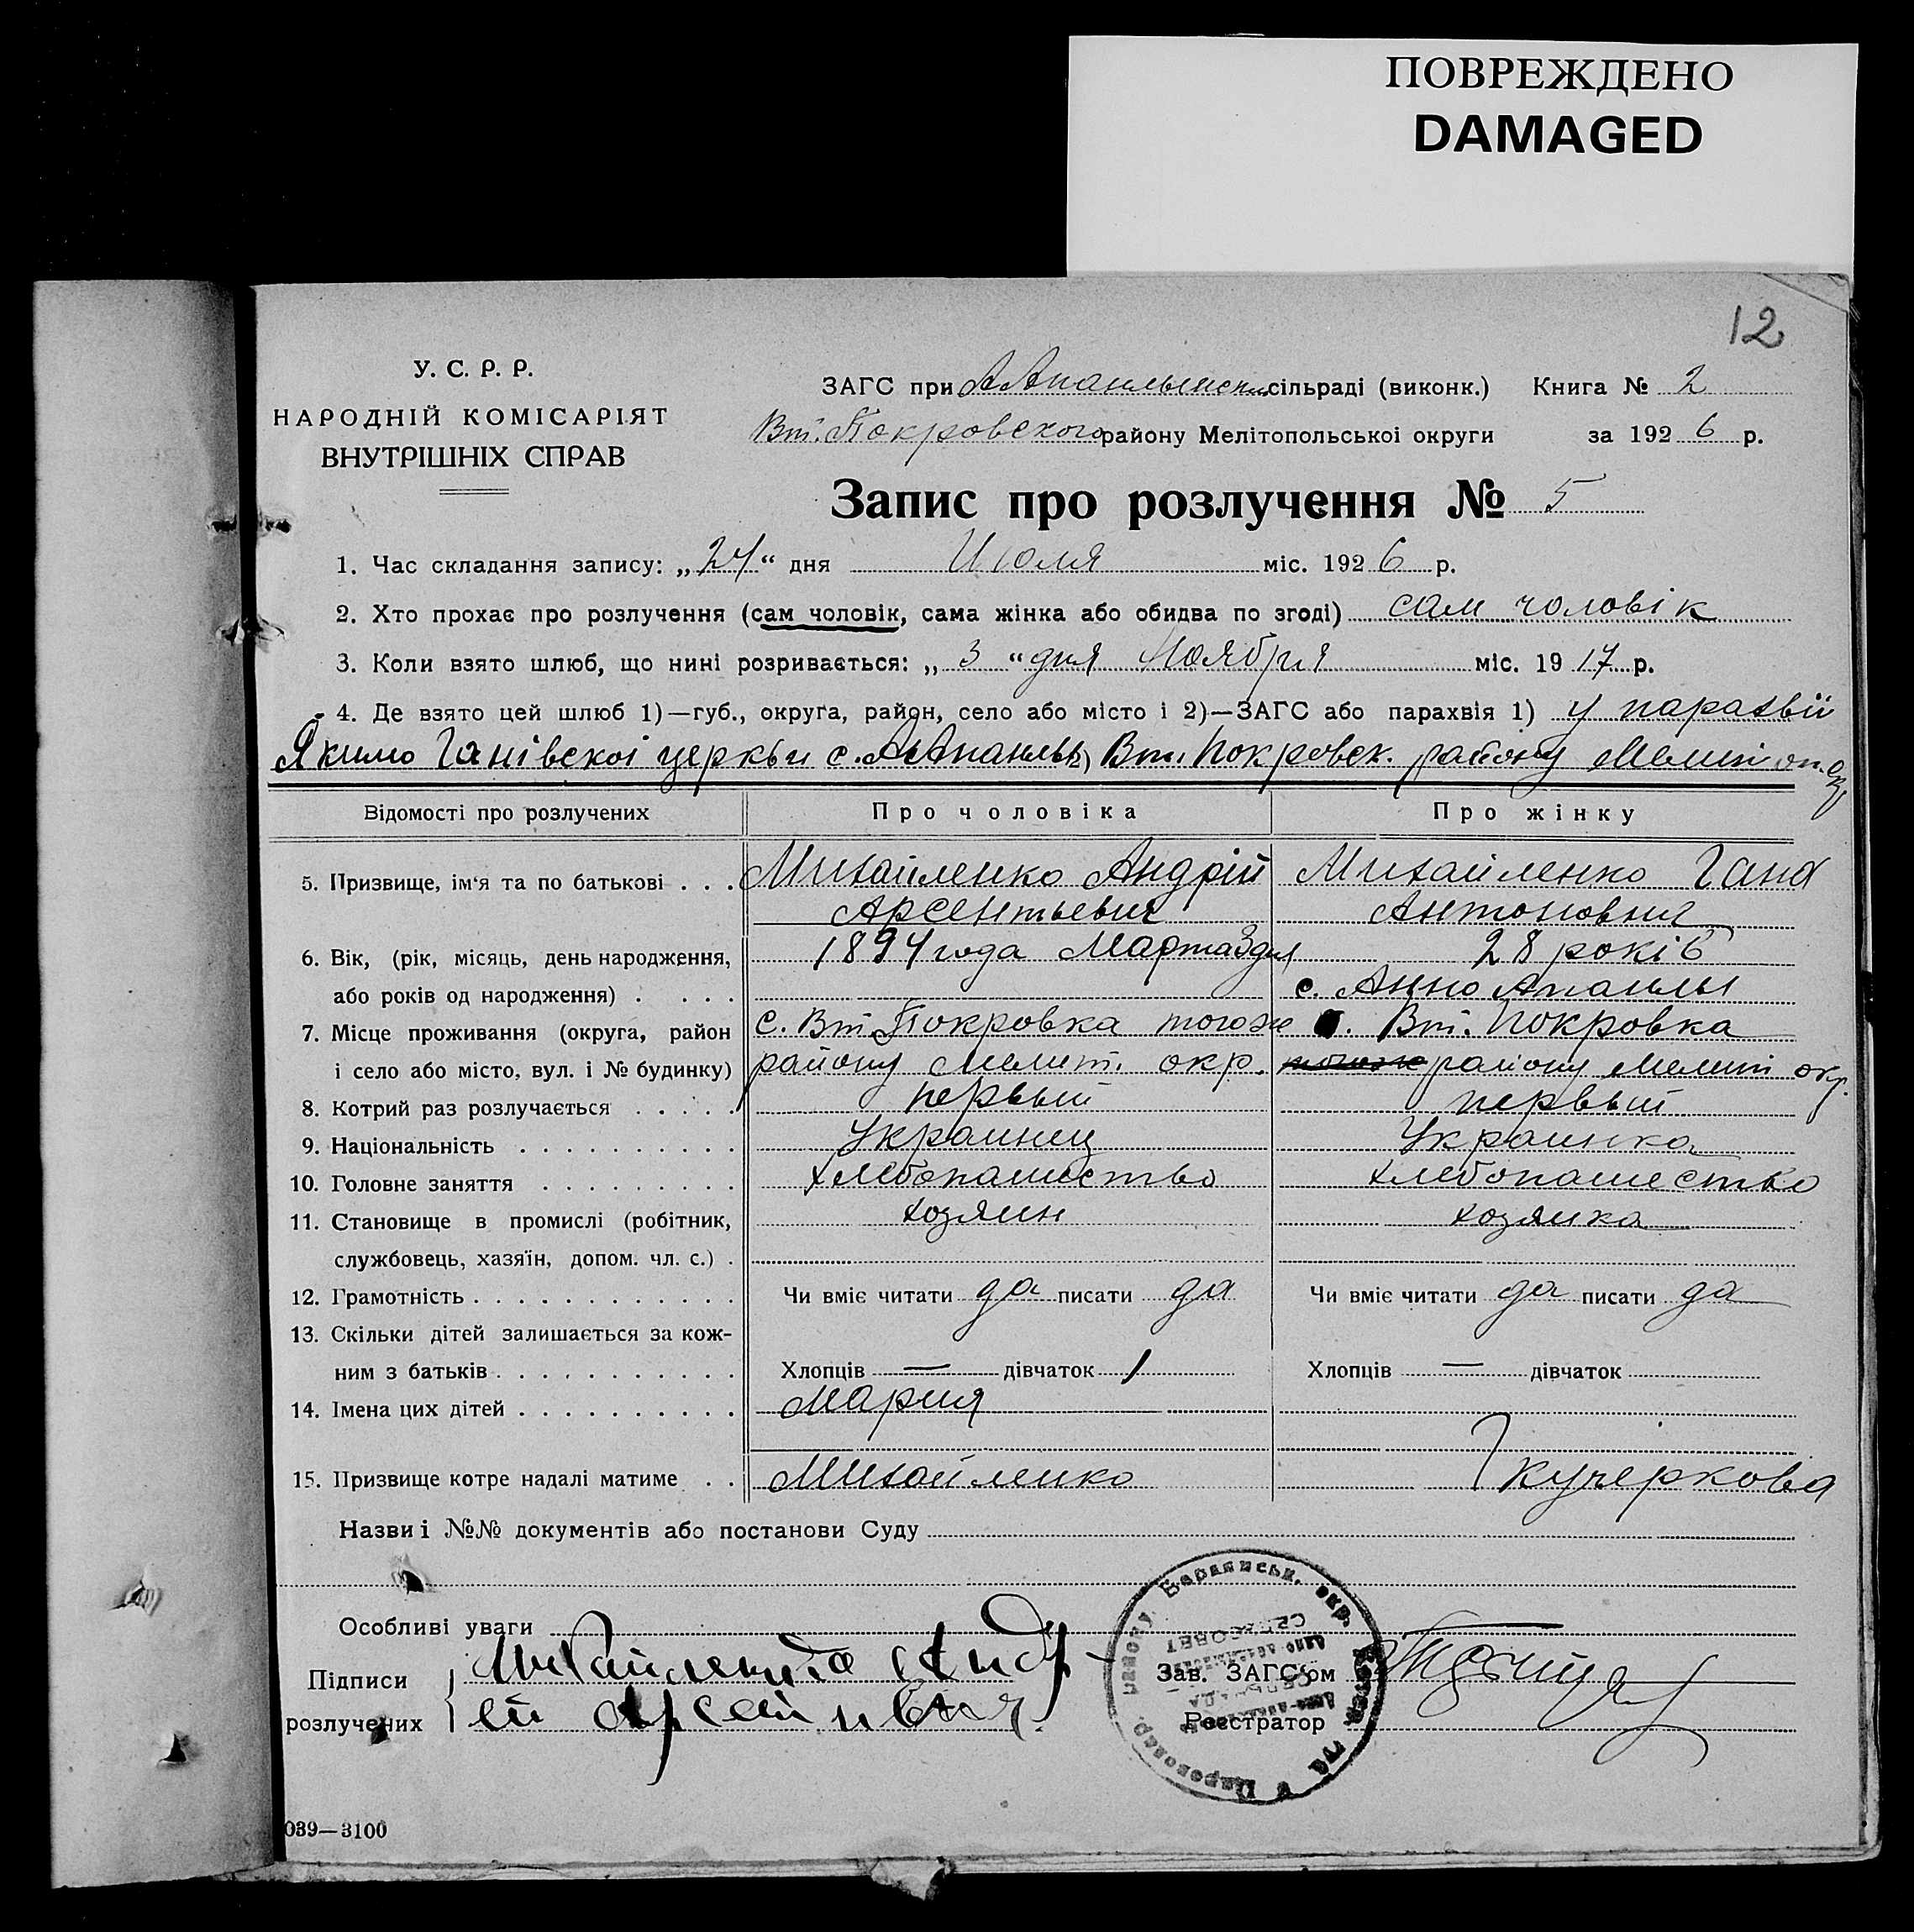 ПОВРЕЖДЕНО
DAMAGED
12
У. С. Р. Р.
НАРОДНІЙ КОМІСАРІЯТ
ВНУТРІШНІХ СПРАВ
ЗАГС при сільраді (виконк.) Книга № 2
Вт. Покровского району Мелітопольськоі округи за 1926 р.
Запис про розлучення № 5
1. Час складання запису: „24“ дня Июля міс. 1926 р.
2. Хто прохає про розлучення (сам чоловік, сама жінка або обидва по згоді) сам чоловік
3. Коли взято шлюб, що нині розривається: „3“ дня Ноября міс. 1917 р.
4. Де взято цей шлюб 1)—губ., округа, район, село або місто і 2)—ЗАГС або парахвія 1) у парахвії
Якимо Ганівскоі церкви с. Вт. Покровск. району Мелитоп. о
Відомості про розлучених Про чоловіка Про жінку
5. Призвище, ім‘я та по батькові . . . Михайленко Андрій Михайленко Гана
Арсентьевич Антоновна
6. Вік, (рік, місяць, день народження, 1894 года Марта 3 дня 28 років
або років од народження) . . . . с. Анно Апанлы
7. Місце проживання (округа, район с. Вт. Покровка тогож Вт. Покровка
і село або місто, вул. і № будинку) району Мелит. окр. району Мелит окр.
8. Котрий раз розлучається . . . . . первый первый
9. Національність . . . . . . . . . . Украинец Украинка
10. Головне заняття . . . . . . . . . хлебопашество хлебопашество
11. Становище в промислі (робітник, хозяин хозяйка
службовець, хазяїн, допом. чл. с.) .
12. Грамотність . . . . . . . . . . . . Чи вміє читати да писати да Чи вміє читати да писати да
13. Скільки дітей залишається за кож-
ним з батьків . . . . . . . . . . . Хлопців — дівчаток 1 Хлопців — дівчаток
14. Імена цих дітей . . . . . . . . . . Мария
15. Призвище котре надалі матиме . . Михайленко Кучеркова
Назви і №№ документів або постанови Суду
Особливі уваги
Підписи Михайленко Андр-
розлучених ей
Зав. ЗАГС‘ом
Реєстратор
Бердянськ. окр.
039—3100